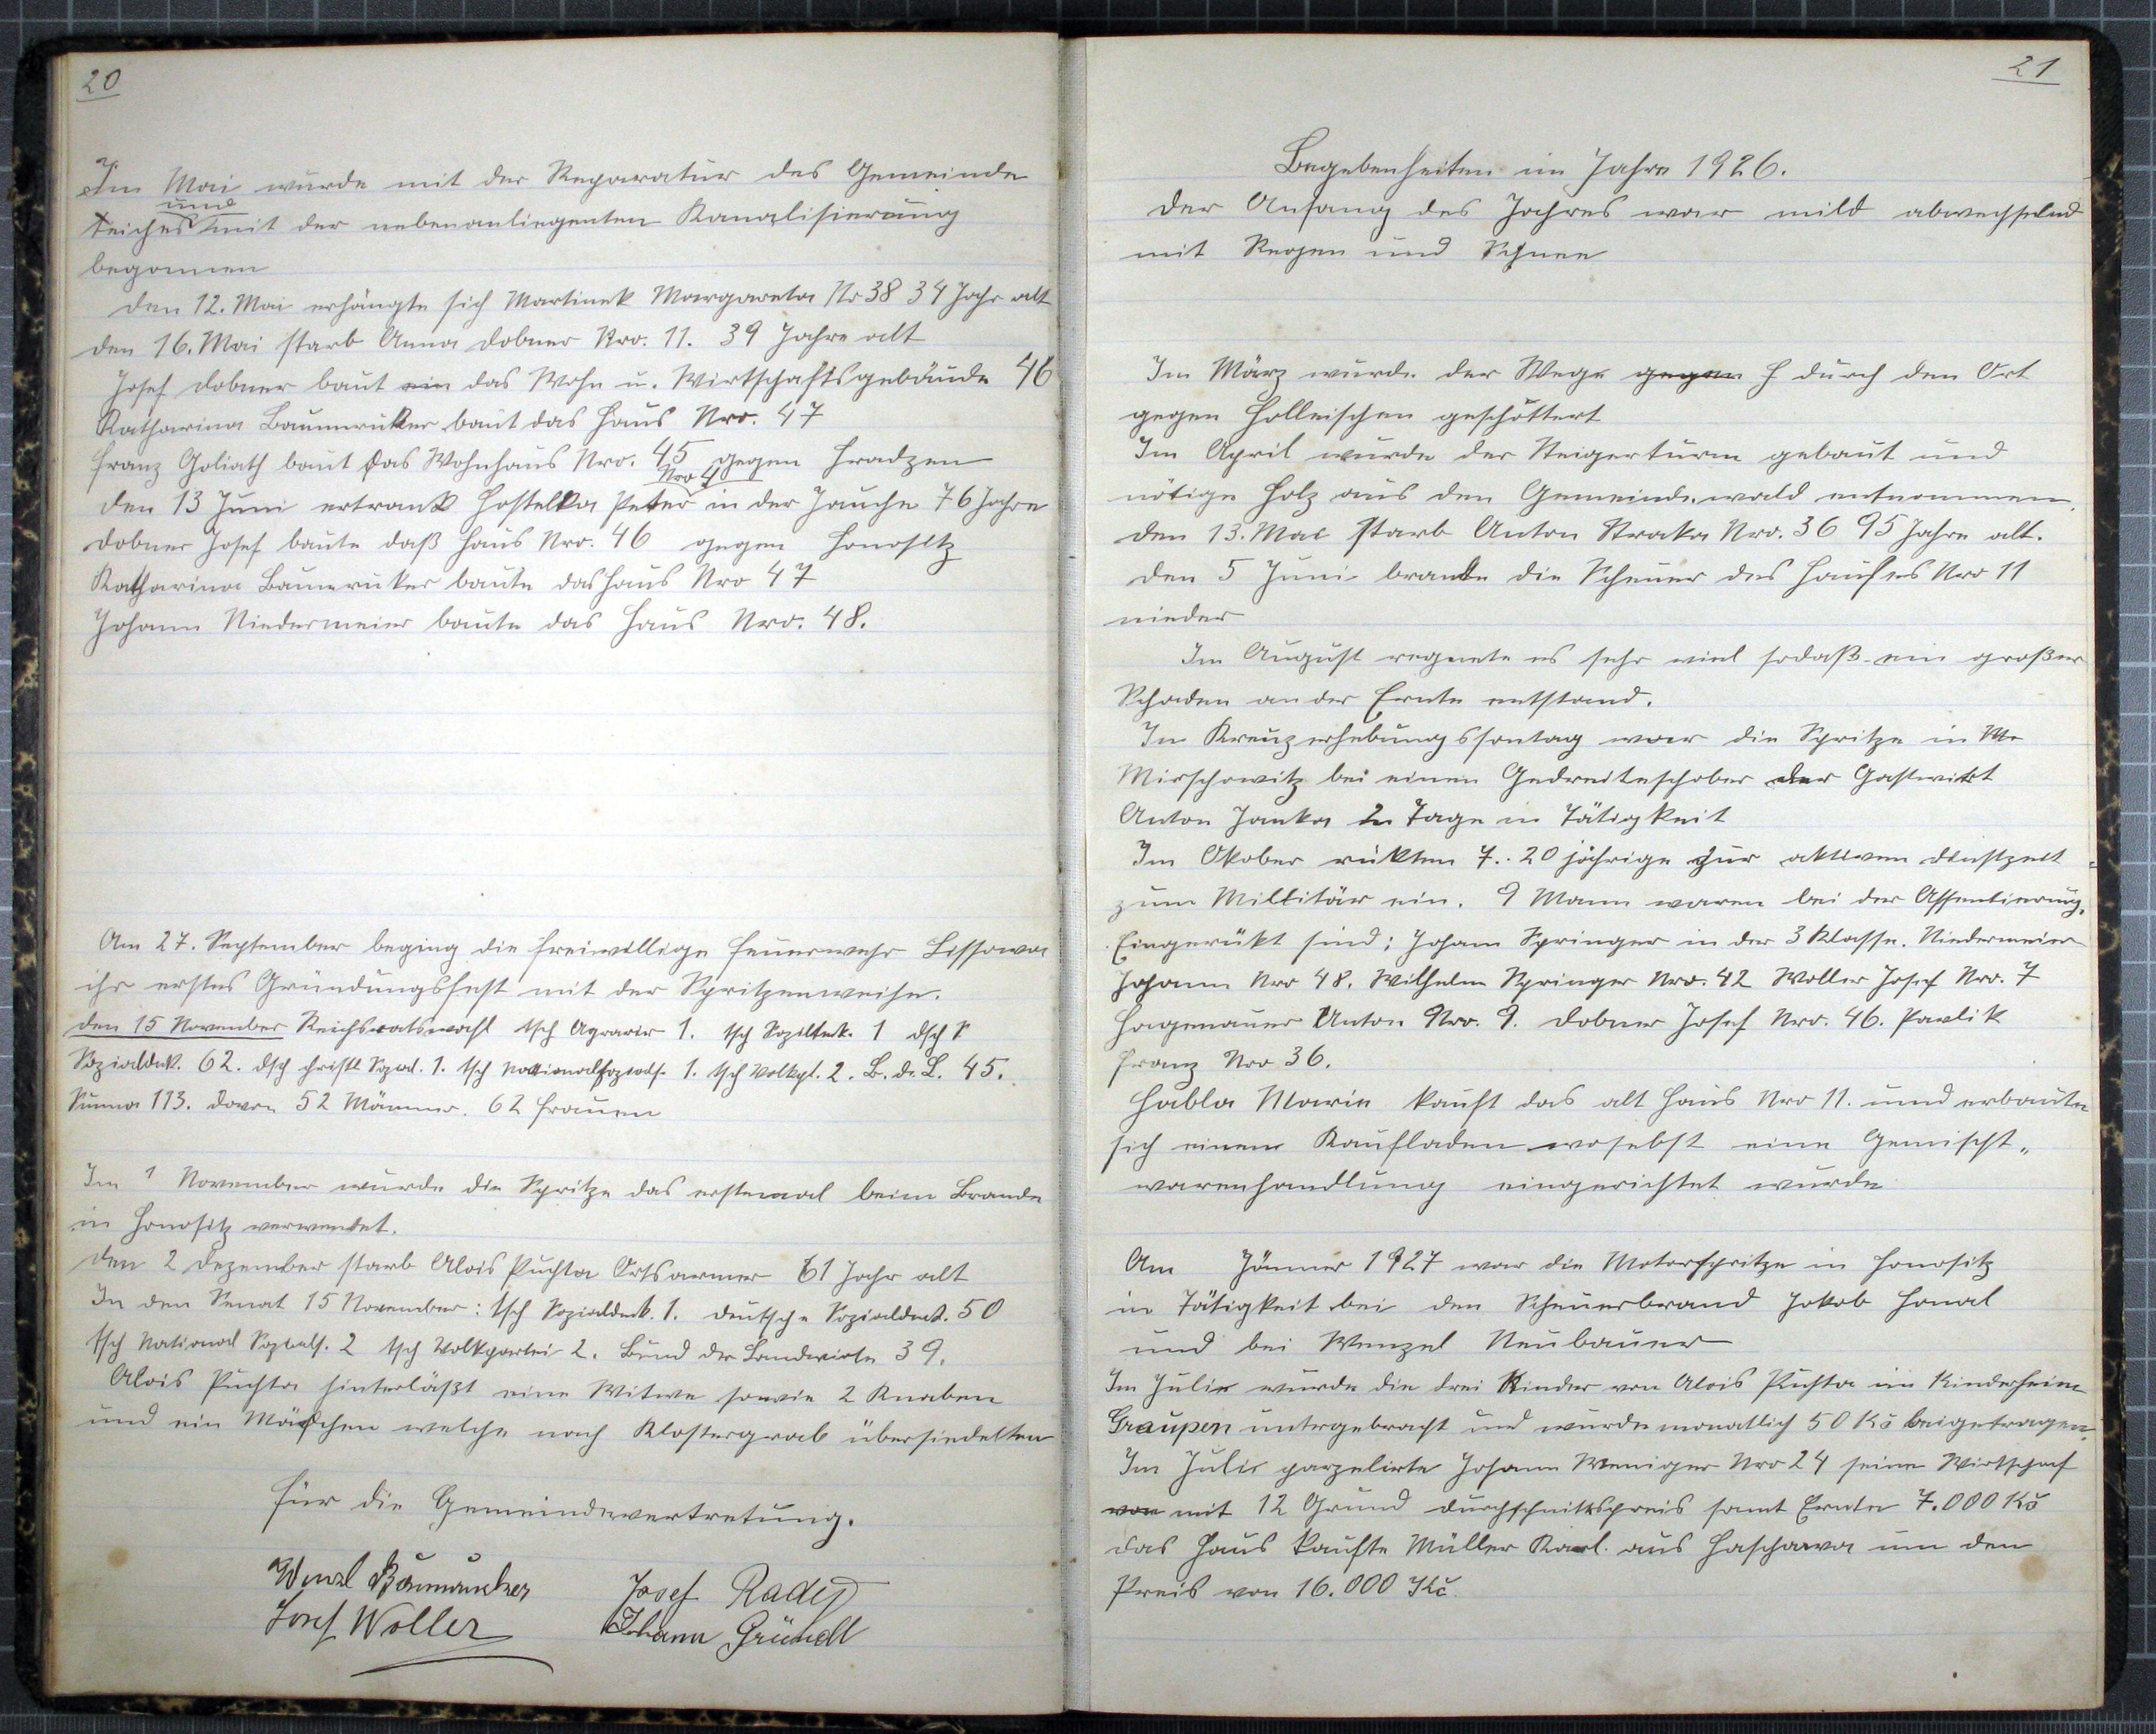 20
Im Mai wurde mit der Reparatur des Gemeinde
und
teiches mit der nebenanliegenten Kanalisierung
begonnen
den 12. Mai erhängte sich Martinek Margareta Nr 38 34 Jahr alt
den 16. Mai starb Anna Dobner Nro. 11. 39 Jahre alt
Josef Dobner baut ein das Wohn u. Wirtschaftsgebäude 46
Katharina Baumruker baut das Haus Nro. 47
Franz Goliath baut das Wohnhaus Nro. 45 gegen Hradzen
Nro 4
den 13 Juni ertrank Hostelka Peter in der Jauche 76 Jahre
Dobner Josef baute daß Haus Nro. 46 gegen Honositz
Katharina Baumruker baute das Haus Nro 47
Johann Niedermeier baute das Haus Nro. 48.
Am 27. September beging die freiwillige Feuerwehr Lissowa
ihr erstes Gründungsfest mit der Spritzenweihe.
den 15 November Reichsratswahl tsch Agrarier 1. tsch 1 dsch
Sozialdek. 62. dsch christl Sozial. 1. tsch Nationalsozials. 1. tsch Volkspt. 2. B. d. L. 45.
Suma 113. davon 52 Männer. 62 Frauen
Im 1 November wurde die Spritze das erstemal beim Brande
in Honositz verwendet.
den 2 Dezember starb Alois Puchta Ortsarmer 61 Jahr alt
In den Senat 15 November: tsch Sozialdek. 1. deutsche Sozialdek. 50
tsch National Sozials. 2 tsch Volkpartei 2. Bund der Landwirte 39.
Alois Puchta hinterläßt eine Witwe sowie 2 Knaben
und ein Mädchen welche nach Klostergrab übersiedelten
für die Gemeindevertretung.
Wenzl Baumruker Josef Rady
Josef Woller Johann Gründl
21
Begebenheiten im Jahre 1926.
Der Anfang des Jahres war mild abwechselnd
mit Regen und Schnee
Im März wurde der Wege gegen H durch den Ort
gegen Holleischen geschöttert
Im April wurde der Steigerturm gebaut und
nötige Holz aus den Gemeindewald entnommen.
den 13. Mai starb Anton Straka Nro. 36 95 Jahre alt.
den 5 Juni brande die Scheuer des Hauses Nro 11
nieder
Im August regnete es sehr viel sodaß ein großer
Schaden an der Ernte entstand.
Im Kreuzerhebungssontag war die Spritze in M
Mirschowitz bei einen Gedreiteschober der Gastwirt
Anton Janka 2 Tage in Tätigkeit
Im Okober rükten 7. 20 jährige zur aktiven Dinstzeit
zum Millitär ein. 9 Mann waren bei der Assentierung.
Eingerükt sind: Johann Springer in der 3 Klasse. Niedermeier
Johann Nro 48. Wilhelm Springer Nro. 42 Woller Josef Nro. 7
Hagenauer Anton Nro. 9. Dobner Josef Nro. 46. Pavlik
Franz Nro 36.
Habla Marie kauft das alt Haus Nro 11. und erbaute
sich einem Kaufladen wosebst eine Gemischt„
warenhandlung eingerichtet wurde
Am Jänner 1927 war die Motorspritze in Honositz
in Tätigkeit bei den Scheuerbrand Jakob Honal
und bei Wenzel Neubauer
Im Julie wurde die drei Kinder von Alois Puchta im Kinderheim
Graupen untergebracht und wurde monatlich 50 Kč beigetragen.
Im Julie parzelirte Johann Weniger Nro 24 seine Wirtschaf
von mit 12 Grund durchschnittspreis samt Ernte 7.000 Kč
das Haus kaufte Müller Karl. aus Haschawa um den
Preis von 16.000 Kč.